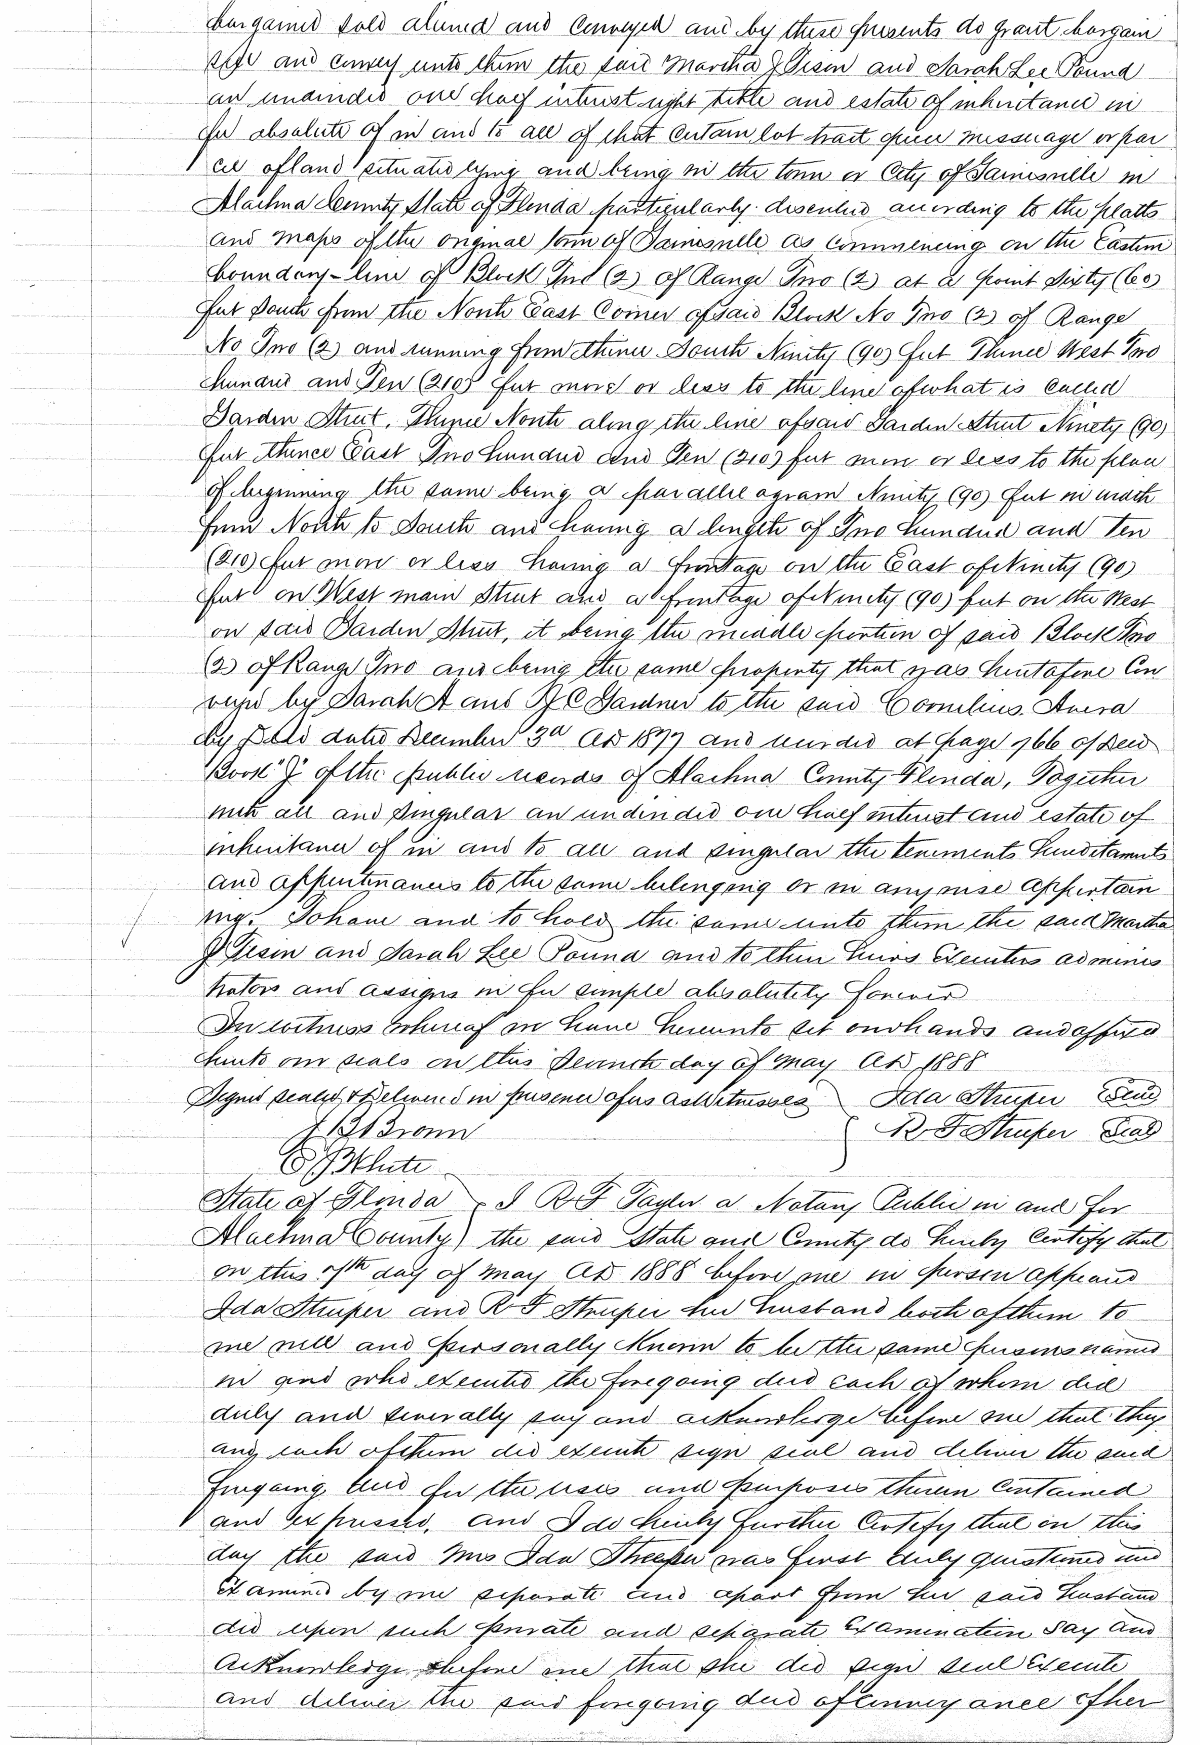 bargained sold aliened and conveyed and by these presents do grant bargain
sell and convey unto them the said Martha J Tison and Sarah Lee Pound
an undivided one half interest right title and estate of inheritance in
fee absolute of in and to all of that certain lot tract piece messuage or par
cel of land situated lying and being in the town or City of Gainesville in
Alachua County State of Florida particularly described according to the platts
and maps of the original town of Gainesville as commencing on the Eastern
boundary-line of Block Two (2) of Range Two (2) at a point Sixty (60)
feet South from the North East Corner of said Block No Two (2) of Range
No Two (2) and running from thence South Ninity (90) feet Thence West Two
hundred and Ten (210) feet more or less to the line of what is called
Garden Street, Thence North along the line of said Garden Street Ninety (90)
feet thence East Two hundred and Ten (210) feet more or less to the place
of beginning the same being a parallelogram Ninity (90) feet in width
from North to South and having a length of Two hundred and Ten
(210) feet more or less having a frontage on the East of Ninety (90)
feet on West main Street and a frontage of Ninety (90) feet on the West
on said Garden Street, it being the middle portion of said Block Two
(2) of Range Two and being the same property that was heretofore Con
veyed by Sarah A and Gardner to the said Cornelius Avera
by Deed dated December 3d AD 1877 and recorded at page 766 of Deed
Book "J" of the public records of Alachua County Florida, Together
with all and singular an undivided one half interest and estate of
inheritance of in and to all and singular the tenements hereditaments
and appurtenances to the same belonging or in anywise appertain
ing. To have and to hold the same unto them the said Martha
J Tison and Sarah Lee Pound and to their heirs Executors adminis
trators and assigns in fee simple absolutely forever
In witness whereof we have hereunto set our hands and affixed
hereto our seals on this Seventh day of May AD 1888
Signed sealed & Delivered in presence of us as Witnesses } Ida Struper Seal
J B Brown { R F Struper Seal
E J White
State of Florida } I R F Taylor a Notary Public in and for
Alachua County) the said State and County do hereby Certify that
on this 7th day of May AD 1888 before me in person appeared
Ida Struper and R F Struper her husband both of them to
me well and personally Known to be the same persons named
in and who executed the foregoing deed each of whom did
duly and severally say and acknowledge before me that they
and each of them did execute sign seal and deliver the said
foregoing deed for the uses and purposes therein Contained
and expressed, and I do hereby further Certify that on this
day the said Mrs Ida Streeper was first duly questioned and
examined by me separate and apart from her said husband
did upon such private and separate examination say and
acknowledge before me that she did sign seal Execute
and deliver the said foregoing deed of conveyance of her